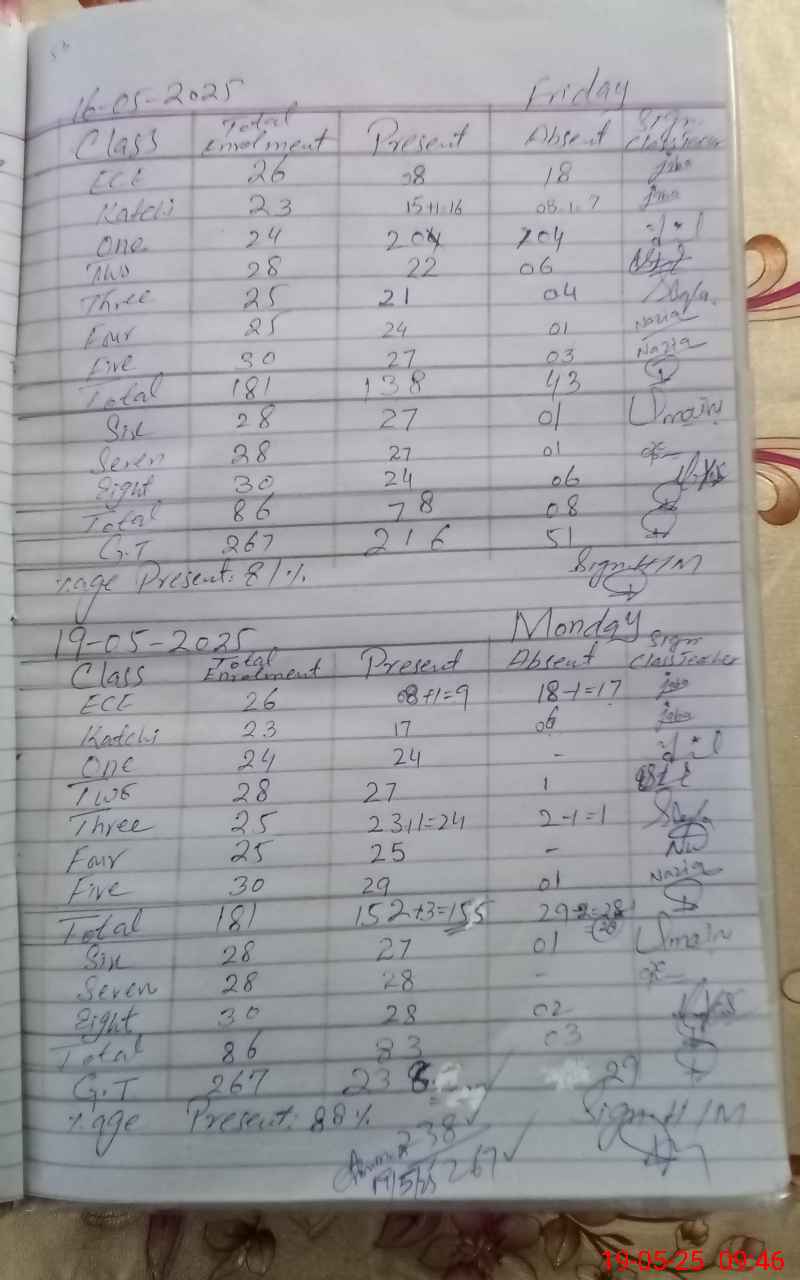 16-05-2025 Friday
Class Total Enrolment Present Absent Sign Class Teacher
ECE 26 08 18
Katchi 23 15+1=16 08-1=7
One 24 204 04
Two 28 22 06
Three 25 21 04
Four 25 24 01 Nazia
Five 30 27 03 Nazia
Total 181 138 43
Six 28 27 01 Umain
Seven 28 27 01
Eight 30 24 06
Total 86 78 08
G.T 267 216 51
%age Present: 81% Sign H/M
19-05-2025 Monday
Class Total Enrolment Present Absent Sign Class Teacher
ECE 26 08+1=9 18-1=17
Katchi 23 17 06
One 24 24 -
Two 28 27 1
Three 25 23+1=24 2-1=1
Four 25 25 -
Five 30 29 01 Nazia
Total 181 152+3=155 29-2=28
=(26)
Six 28 27 01 Umain
Seven 28 28 -
Eight 30 28 02
Total 86 83 03
G.T 267 238 29
%age Present: 88% Sign H/M
238 ✓
19/5/25 267 ✓
19-05-25 09:46